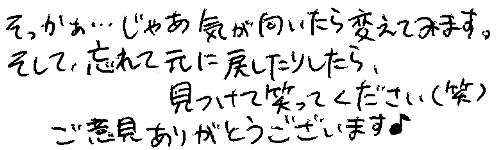 そっかぁ…じゃあ気が向いたら変えてみます。
そして、忘れて元に戻したりしたら、
見つけて笑ってください(笑)
ご意見ありがとうございます♪